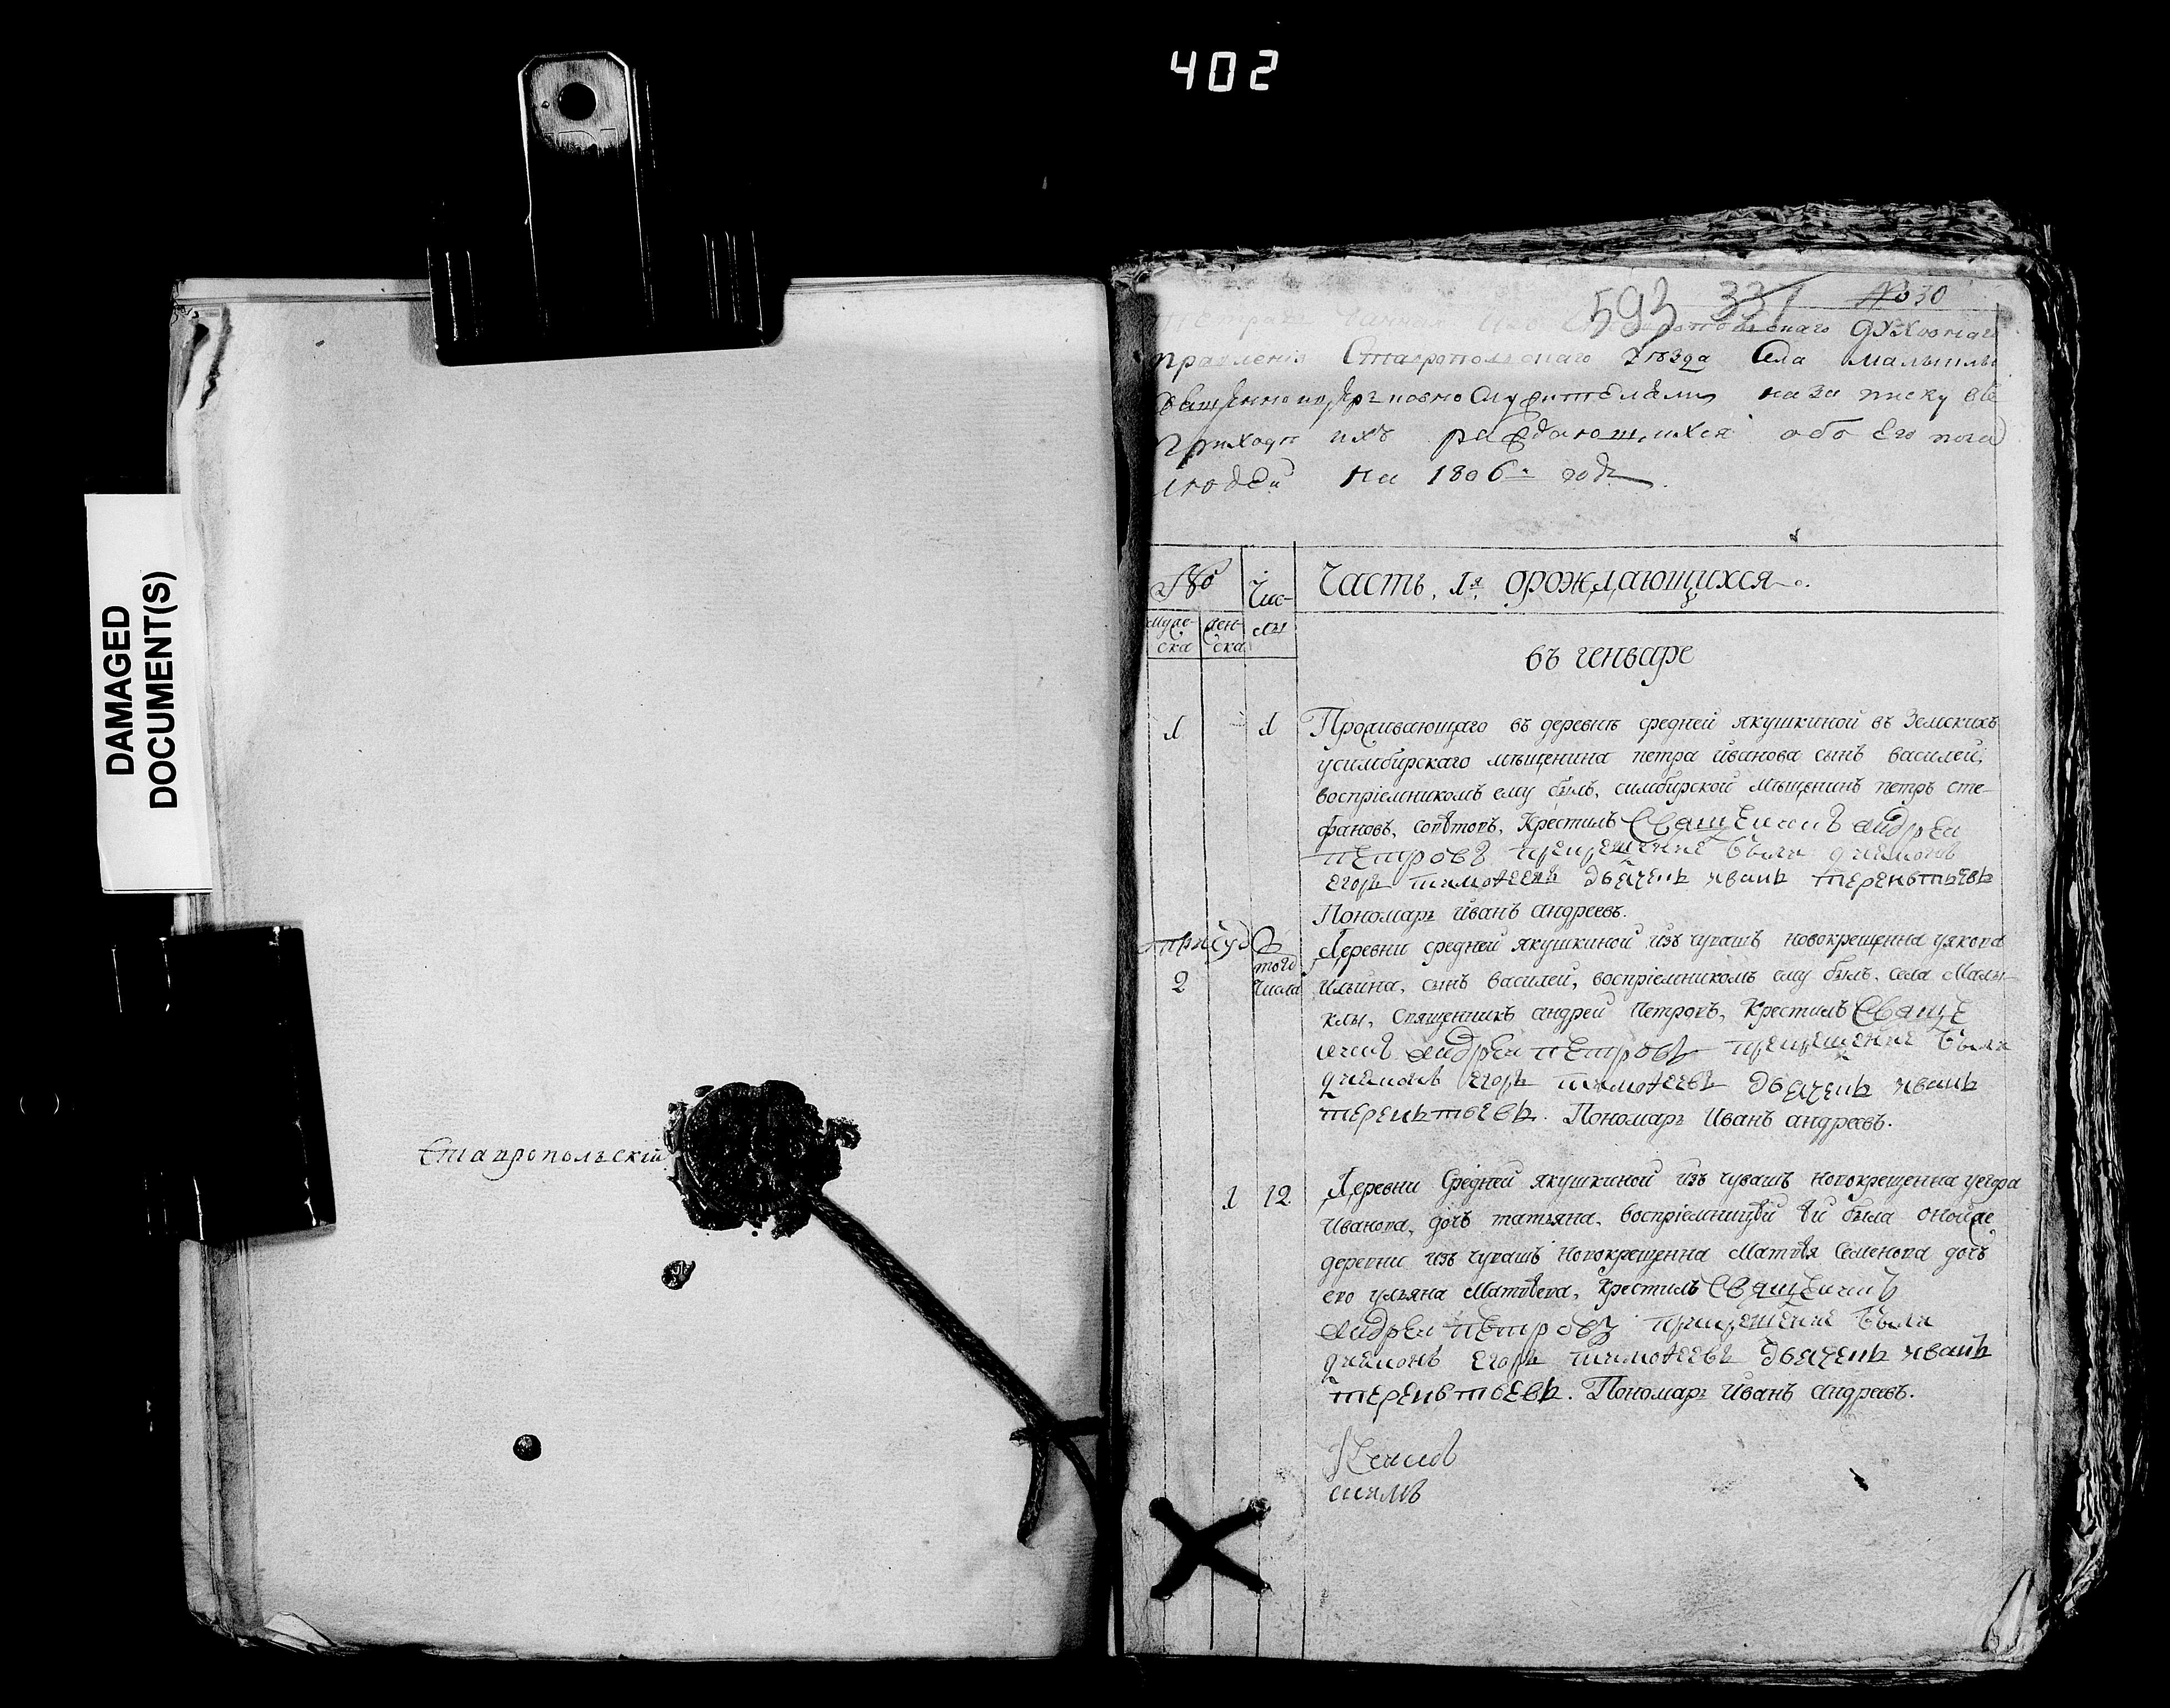 402
DAMAGED
DOCUMENT(S)
Ставропольскій
593 331 № 30
духовнаго
правленія Ставропольскаго уѣзда Села Малыклы
священно и церковнослужителями на записку въ
приходѣ ихъ раждающихся обоего пола
людей на 1806й годъ
№ Чис-
Часть, 1я орождающихся
муже- жен- лы
ска ска
въ генваре
1 1 Проживающаго въ деревнѣ средней якушкиной въ Земскихъ
усимбирскаго мѣщенина петра иванова сынъ василей,
воспріемникомъ ему былъ, симбирской Мѣщенинъ петръ сте-
фановъ, Крестилъ Священникъ андрей
петровъ прикрещение были диаконъ
егоръ тимофеевъ дьяченъ иванъ терентьевъ
Пономарь иванъ андреевъ.
2 того числа
Деревни средней якушкиной изъ чувашъ новокрещенна уякова
ильина, сынъ василей, воспріемникомъ ему былъ, села Малы-
клы, священникъ андрей Петровъ, Крестилъ Свяще
никъ андрей петровъ прикрещение были
диаконъ егоръ тимофеевъ дьяченъ иванъ
терентьевъ. Пономарь Иванъ андреевъ.
1 12 Деревни Средней якушкиной изъ чувашъ новокрещенна уегора
Иванова, дочь татьяна, воспріемницей ей была оной же
деревни изъ чувашъ новокрещенна Матвѣя Семенова дочь
его ульяна Матвѣева, крестилъ Священникъ
андрей петровъ прикрещение были
диаконъ егоръ тимофеевъ дьяченъ иванъ
терентьевъ. Пономарь Иванъ андреевъ.